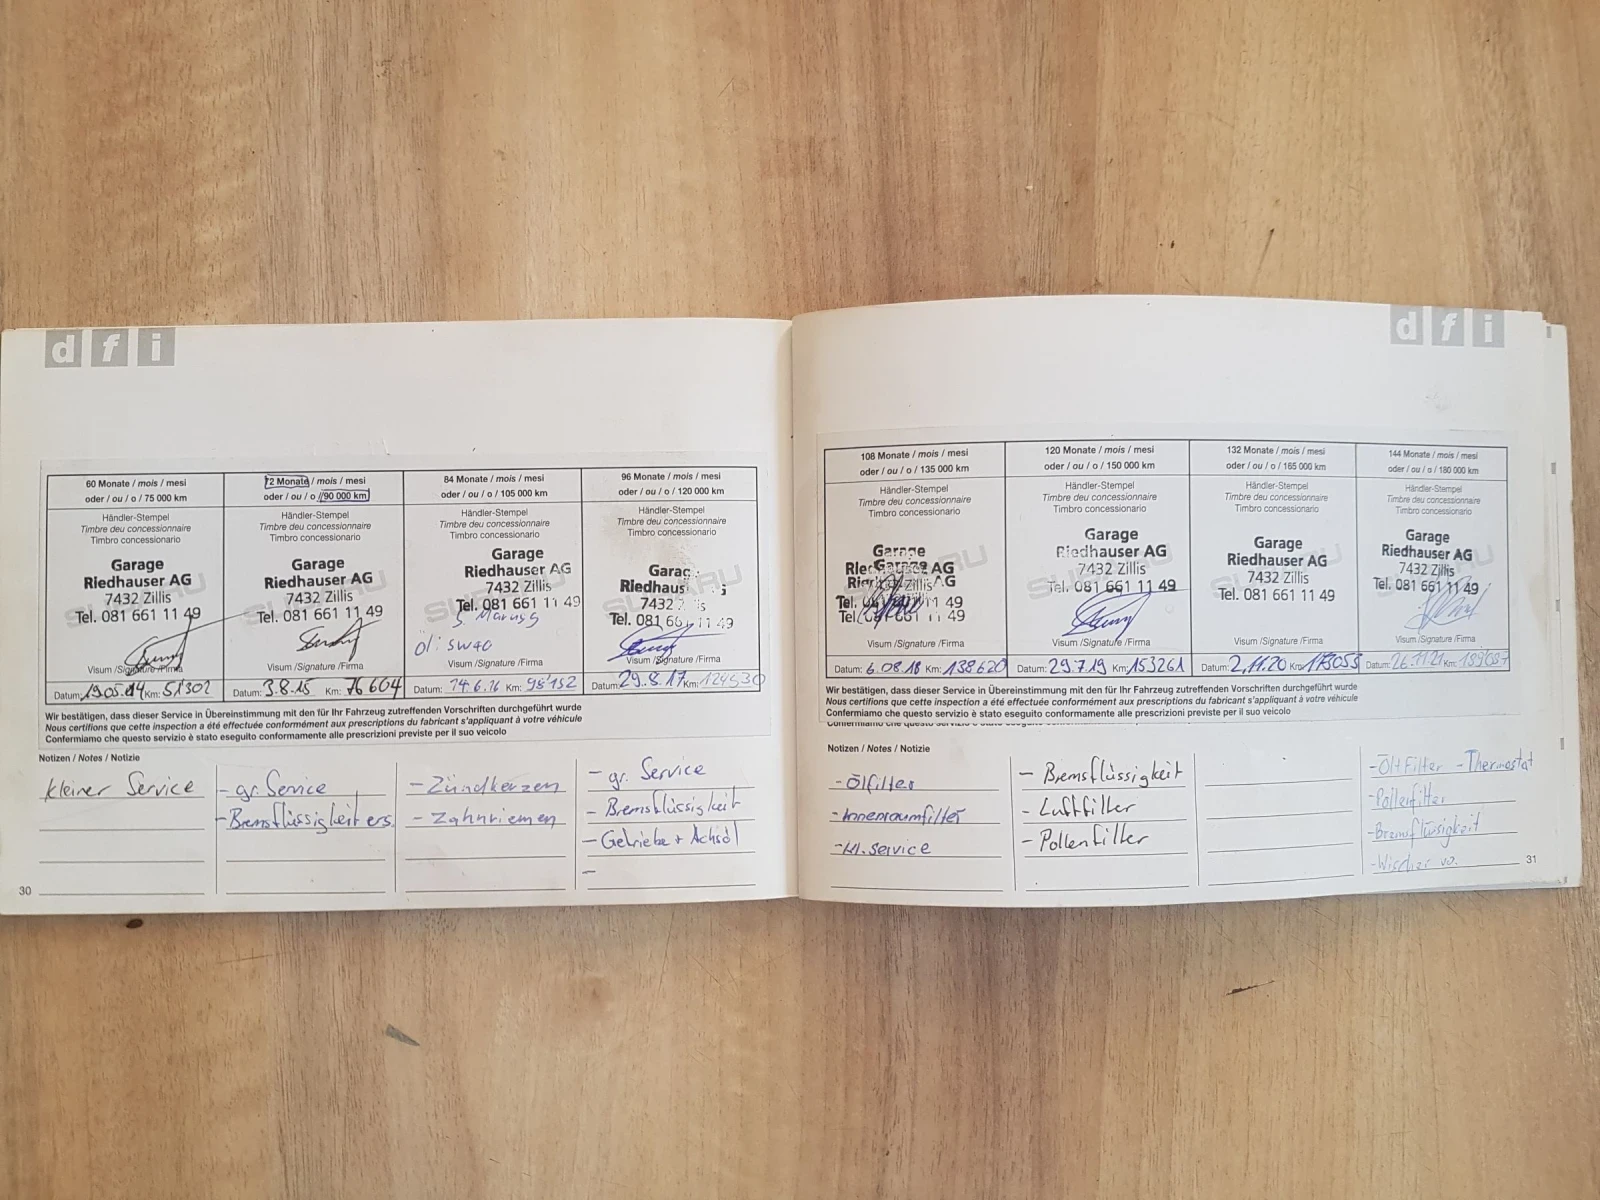 d f i
60 Monate / mois / mesi
oder / ou / o / 75 000 km
Händler-Stempel
Timbre deu concessionnaire
Timbro concessionario
SUBARU
Garage
Riedhauser AG
7432 Zillis
Tel. 081 661 11 49
Visum /Signature /Firma
Datum: 19.05.14 Km: 51302
72 Monate / mois / mesi
oder / ou / o / 90 000 km
Händler-Stempel
Timbre deu concessionnaire
Timbro concessionario
SUBARU
Garage
Riedhauser AG
7432 Zillis
Tel. 081 661 11 49
Visum /Signature /Firma
Datum: 3.8.15 Km: 76604
84 Monate / mois / mesi
oder / ou / o / 105 000 km
Händler-Stempel
Timbre deu concessionnaire
Timbro concessionario
SUBARU
Garage
Riedhauser AG
7432 Zillis
Tel. 081 661 11 49
öl: 5W40
Visum /Signature /Firma
Datum: 14.6.16 Km: 98'152
96 Monate / mois / mesi
oder / ou / o / 120 000 km
Händler-Stempel
Timbre deu concessionnaire
Timbro concessionario
SUBARU
Garag
Riedhaus
7432
Tel. 081 66 11 49
Visum /Signature /Firma
Datum: 29.8.17 Km: 124530
Wir bestätigen, dass dieser Service in Übereinstimmung mit den für Ihr Fahrzeug zutreffenden Vorschriften durchgeführt wurde
Nous certifions que cette inspection a été effectuée conformément aux prescriptions du fabricant s'appliquant à votre véhicule
Confermiamo che questo servizio è stato eseguito conformamente alle prescrizioni previste per il suo veicolo
Notizen / Notes / Notizie
kleiner Service
- gr. Service
- Bremsflüssigkeit ers.
- Zündkerzen
- Zahnriemen
- gr. Service
- Bremsflüssigkeit
- Getriebe + Achsöl
-
30
d f i
108 Monate / mois / mesi
oder / ou / o / 135 000 km
Händler-Stempel
Timbre deu concessionnaire
Timbro concessionario
SUBARU
Garage
Garage
AG
Zillis AG
Tel. 11 49
Tel 661 11 49
Visum /Signature /Firma
Datum: 6.08.18 Km: 138620
120 Monate / mois / mesi
oder / ou / o / 150 000 km
Händler-Stempel
Timbre deu concessionnaire
Timbro concessionario
SUBARU
Garage
Riedhauser AG
7432 Zillis
Tel. 081 661 11 49
Visum /Signature /Firma
Datum: 29.7.19 Km: 153261
132 Monate / mois / mesi
oder / ou / o / 165 000 km
Händler-Stempel
Timbre deu concessionnaire
Timbro concessionario
SUBARU
Garage
Riedhauser AG
7432 Zillis
Tel. 081 661 11 49
Visum /Signature /Firma
Datum: 2.11.20 Km: 173055
144 Monate / mois / mesi
oder / ou / o / 180 000 km
Händler-Stempel
Timbre deu concessionnaire
Timbro concessionario
SUBARU
Garage
Riedhauser AG
7432 Zillis
Tel. 081 661 11 49
Visum /Signature /Firma
Datum: 26.11.21 Km:
Wir bestätigen, dass dieser Service in Übereinstimmung mit den für Ihr Fahrzeug zutreffenden Vorschriften durchgeführt wurde
Nous certifions que cette inspection a été effectuée conformément aux prescriptions du fabricant s'appliquant à votre véhicule
Confermiamo che questo servizio è stato eseguito conformamente alle prescrizioni previste per il suo veicolo
Notizen / Notes / Notizie
- Ölfilter
- Innenraumfilter
- kl. Service
- Bremsflüssigkeit
- Luftfilter
- Pollenfilter
- Öl+Filter - Thermostat
- Pollenfilter
- Bremsflüssigkeit
- Wischer vo.
31